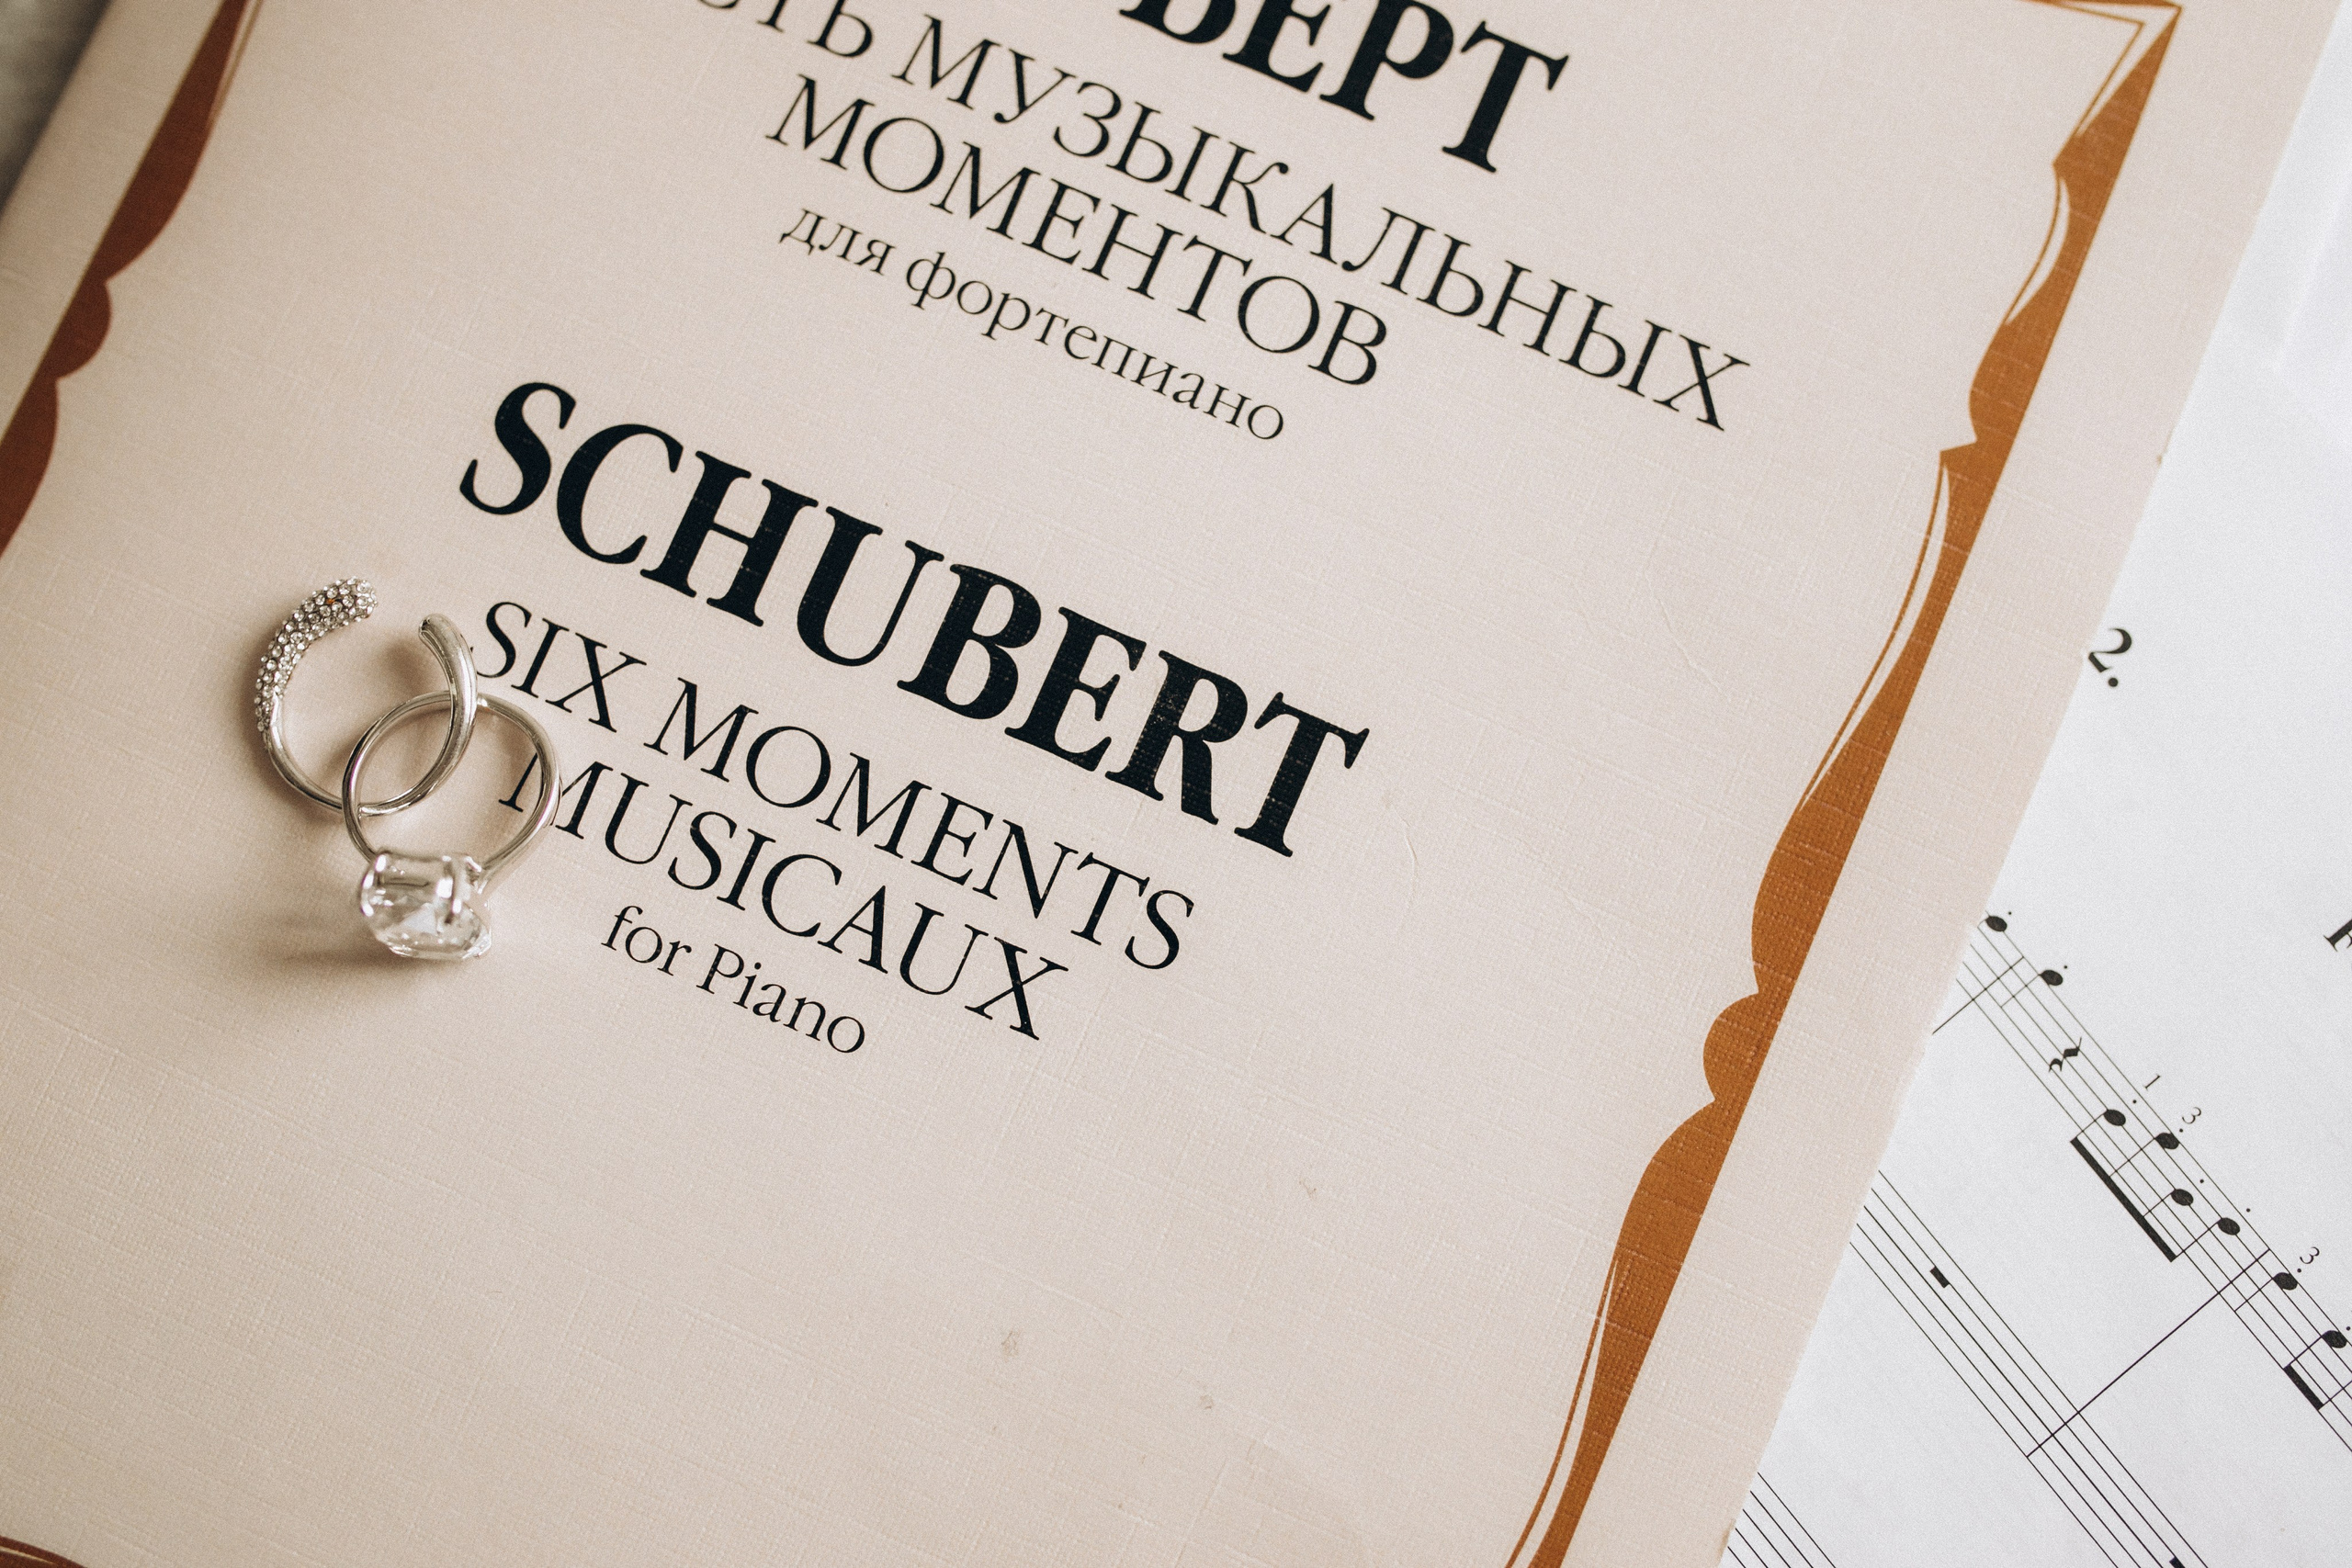 МУЗЫКАЛЬНЫХ
МОМЕНТОВ
для фортепиано
SCHUBERT
SIX MOMENTS
MUSICAUX
for Piano
2.
1
3
3